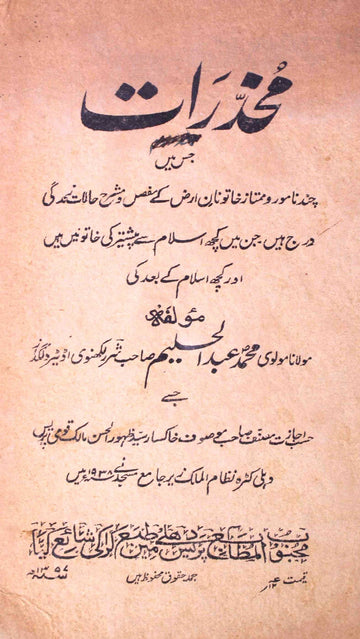 مخدّرات
جس میں
چند نامور و ممتاز خاتونان ارض کے مفصل و مشرح حالات زندگی
درج ہیں جن میں کچھ اسلام سے پیشتر کی خاتونیں ہیں
اور کچھ اسلام کے بعد کی
مؤلفہ
مولانا مولوی محمد عبدالحلیم صاحب شرر لکھنوی اڈیٹر دلگداز
جسے
حسب اجازت مصنف صاحب موصوف خاکسار سید ظہور الحسن مالک قومی پریس
دہلی کٹرہ نظام الملک زیر جامع مسجد نے ۱۹۳۸ء میں
محبوب المطابع برقی پریس دھلی میں طبع کراکے شائع کیا
قیمت
جملہ حقوق محفوظ ہیں
۱۳۵۷ھ